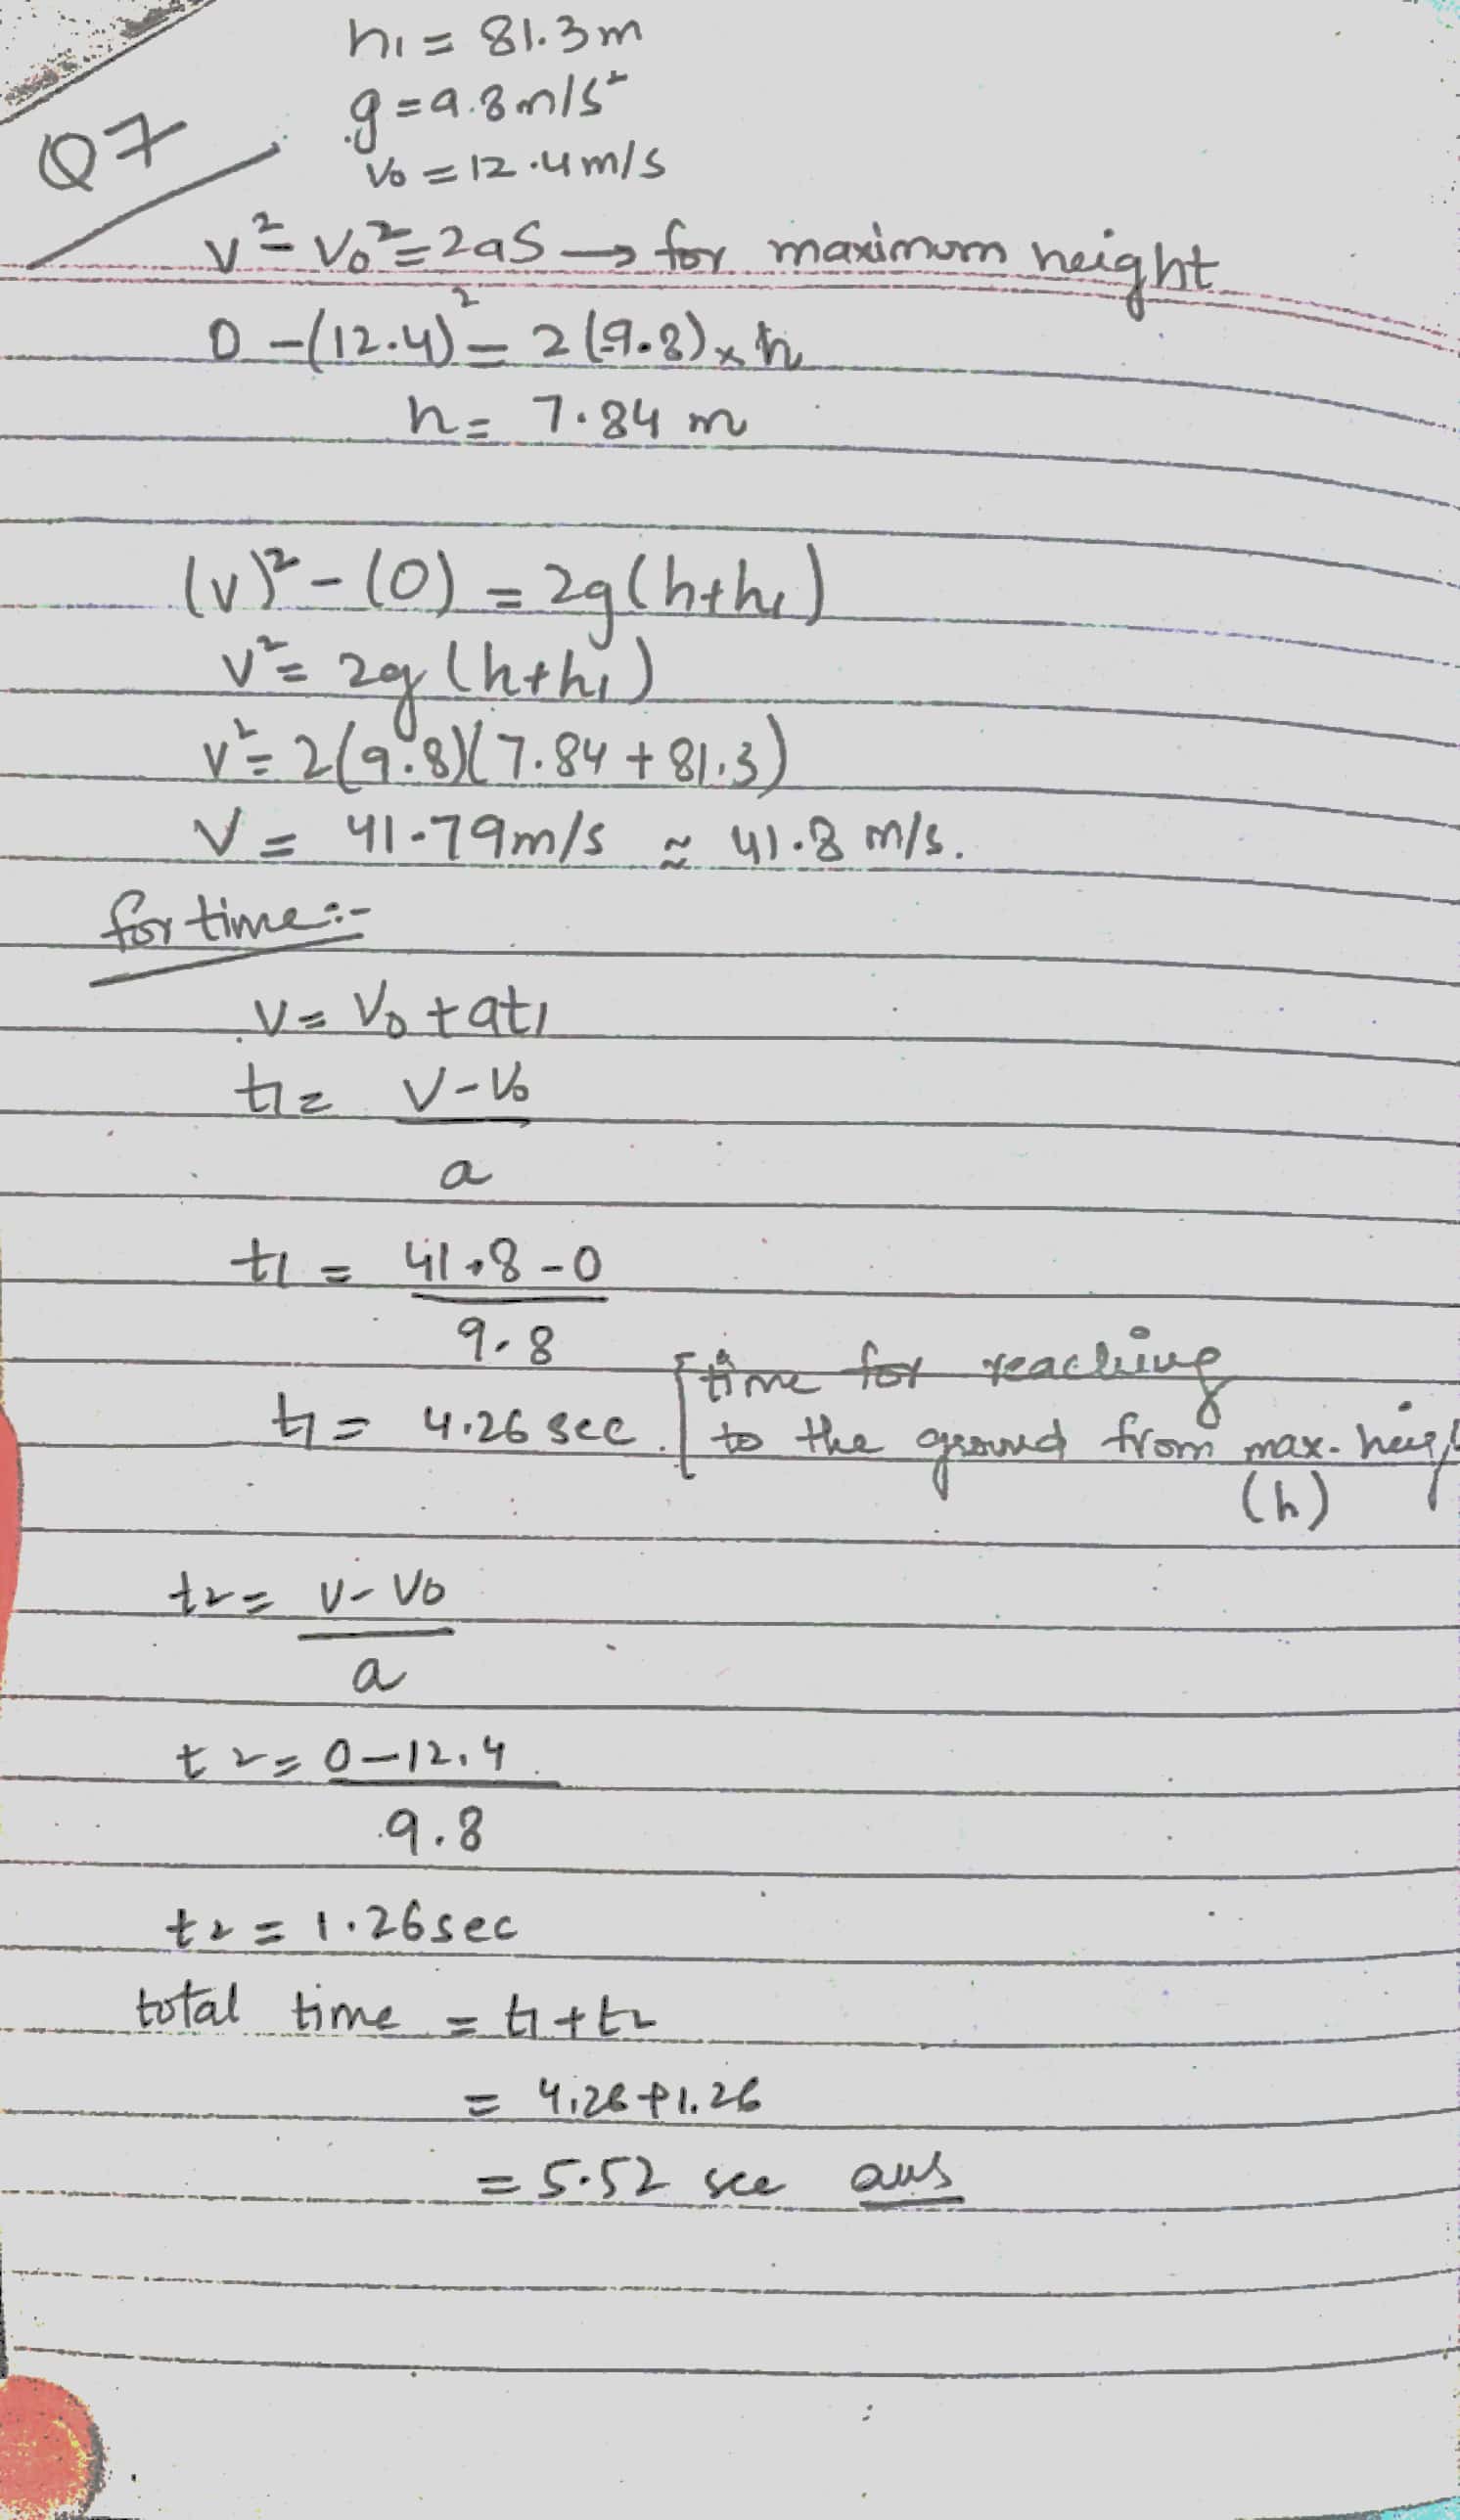 h1 = 81.3m
g = 9.8 m/s²
Q7
v0 = 12.4 m/s
v² - v0² = 2as → for maximum height
0 - (12.4)² = 2(-9.8) × h
h = 7.84 m
(v)² - (0) = 2g(h+h1)
v² = 2g(h+h1)
v² = 2(9.8)(7.84 + 81.3)
v = 41.79m/s ≈ 41.8 m/s.
for time:-
v = v0 + at1
t1 = v - v0
a
t1 = 41.8 - 0
9.8
[time for reaching
t1 = 4.26 sec. to the ground from max. heig
(h)
t2 = v - v0
a
t2 = 0 - 12.4
9.8
t2 = 1.26sec
total time = t1 + t2
= 4.26 + 1.26
= 5.52 sec ans